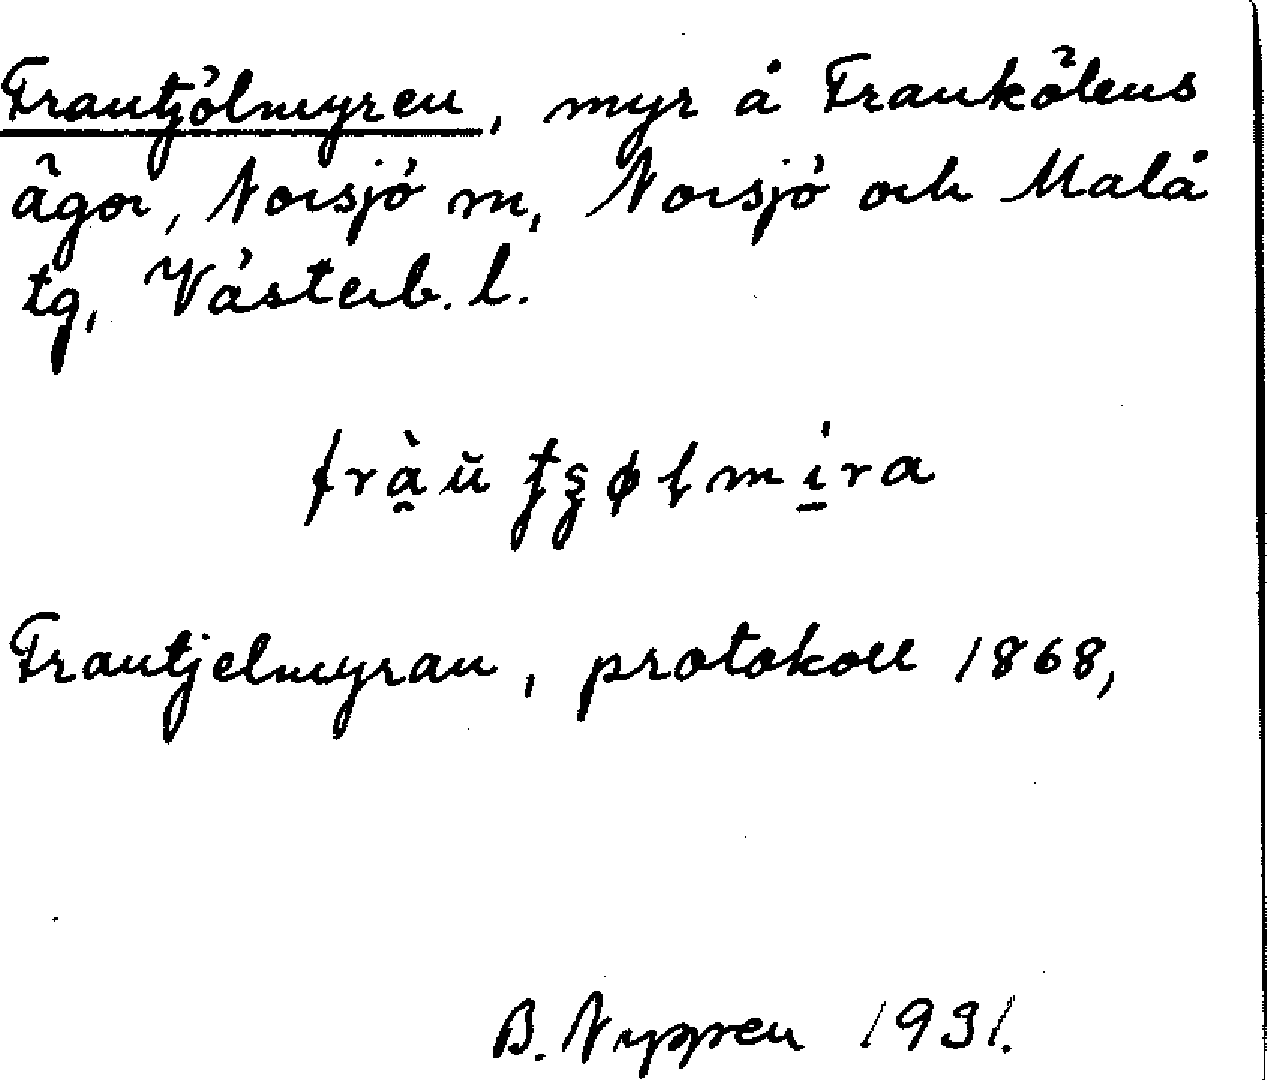 Frautjölmyren, myr å Frauköleus
ägor, Norsjö sn, Norsjö och Malå
tg, Västerb. l.
Frautjelmyran, protokoll 1868,
B. Nygren 1931.